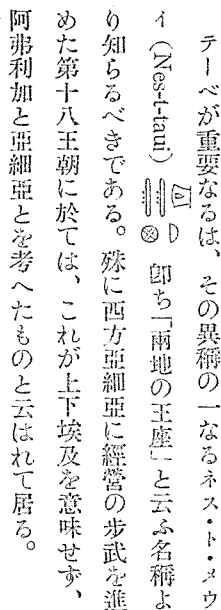 テーベが重要なるは、その異稱の一なるネス・ト・メウ
イ(Nes-t-taui) 卽ち「兩地の王座」と云ふ名稱よ
り知らるべきである。殊に西方亞細亞に經營の步武を進
めた第十八王朝に於ては、これが上下埃及を意味せず、
阿弗利加と亞細亞とを考へたものと云はれて居る。